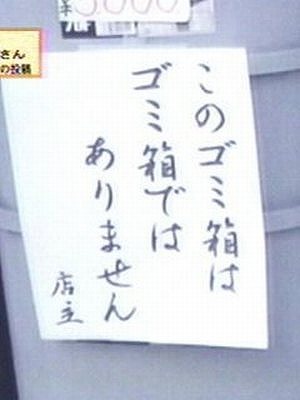 このゴミ箱は
ゴミ箱では
ありません
店主
さん
の投稿